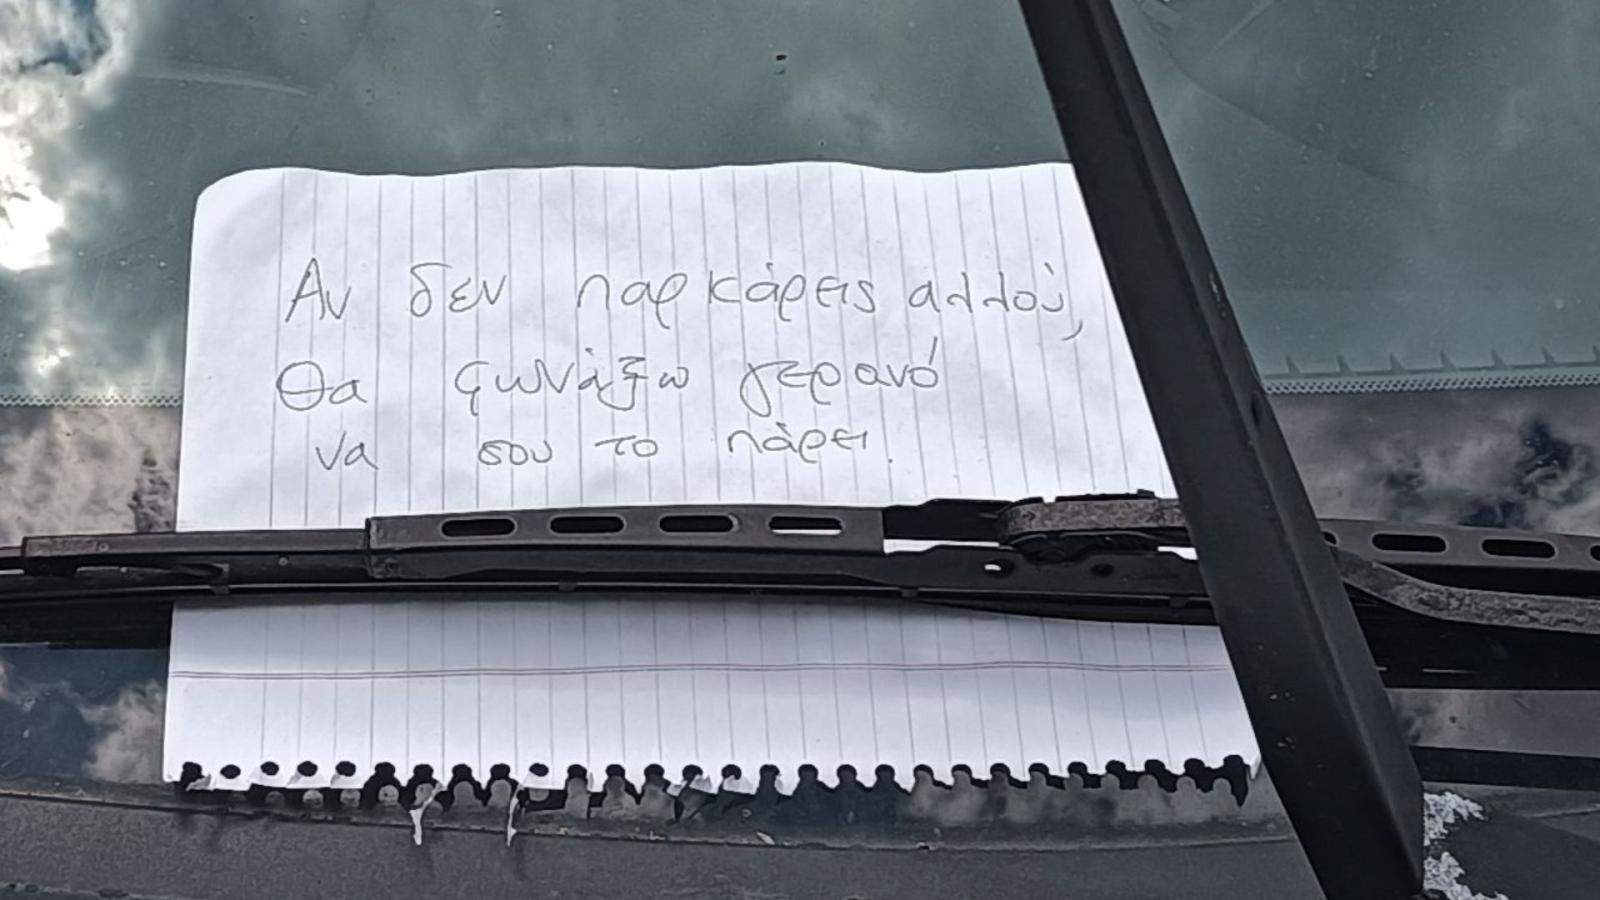 Αν δεν παρκάρεις αλλού,
Θα φωνάξω γερανό
να σου το πάρει.